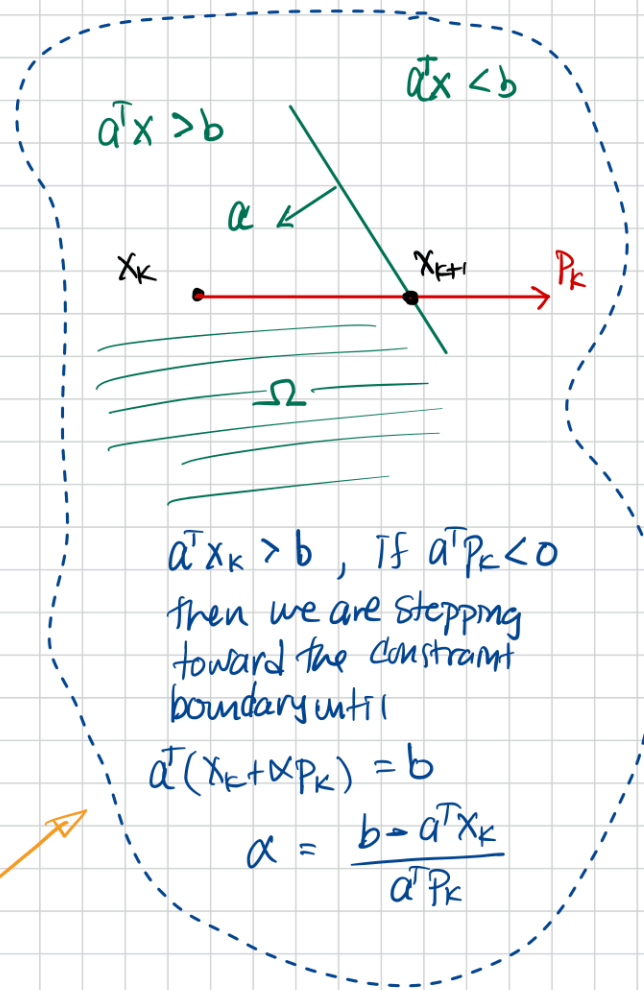 aᵀx < b
aᵀx > b
a
x_K
x_{K+1}
P_K
Ω
aᵀx_K > b , if aᵀp_K < 0
then we are stepping
toward the constraint
boundary until
aᵀ(x_K + αp_K) = b
α = (b - aᵀx_K) / (aᵀp_K)